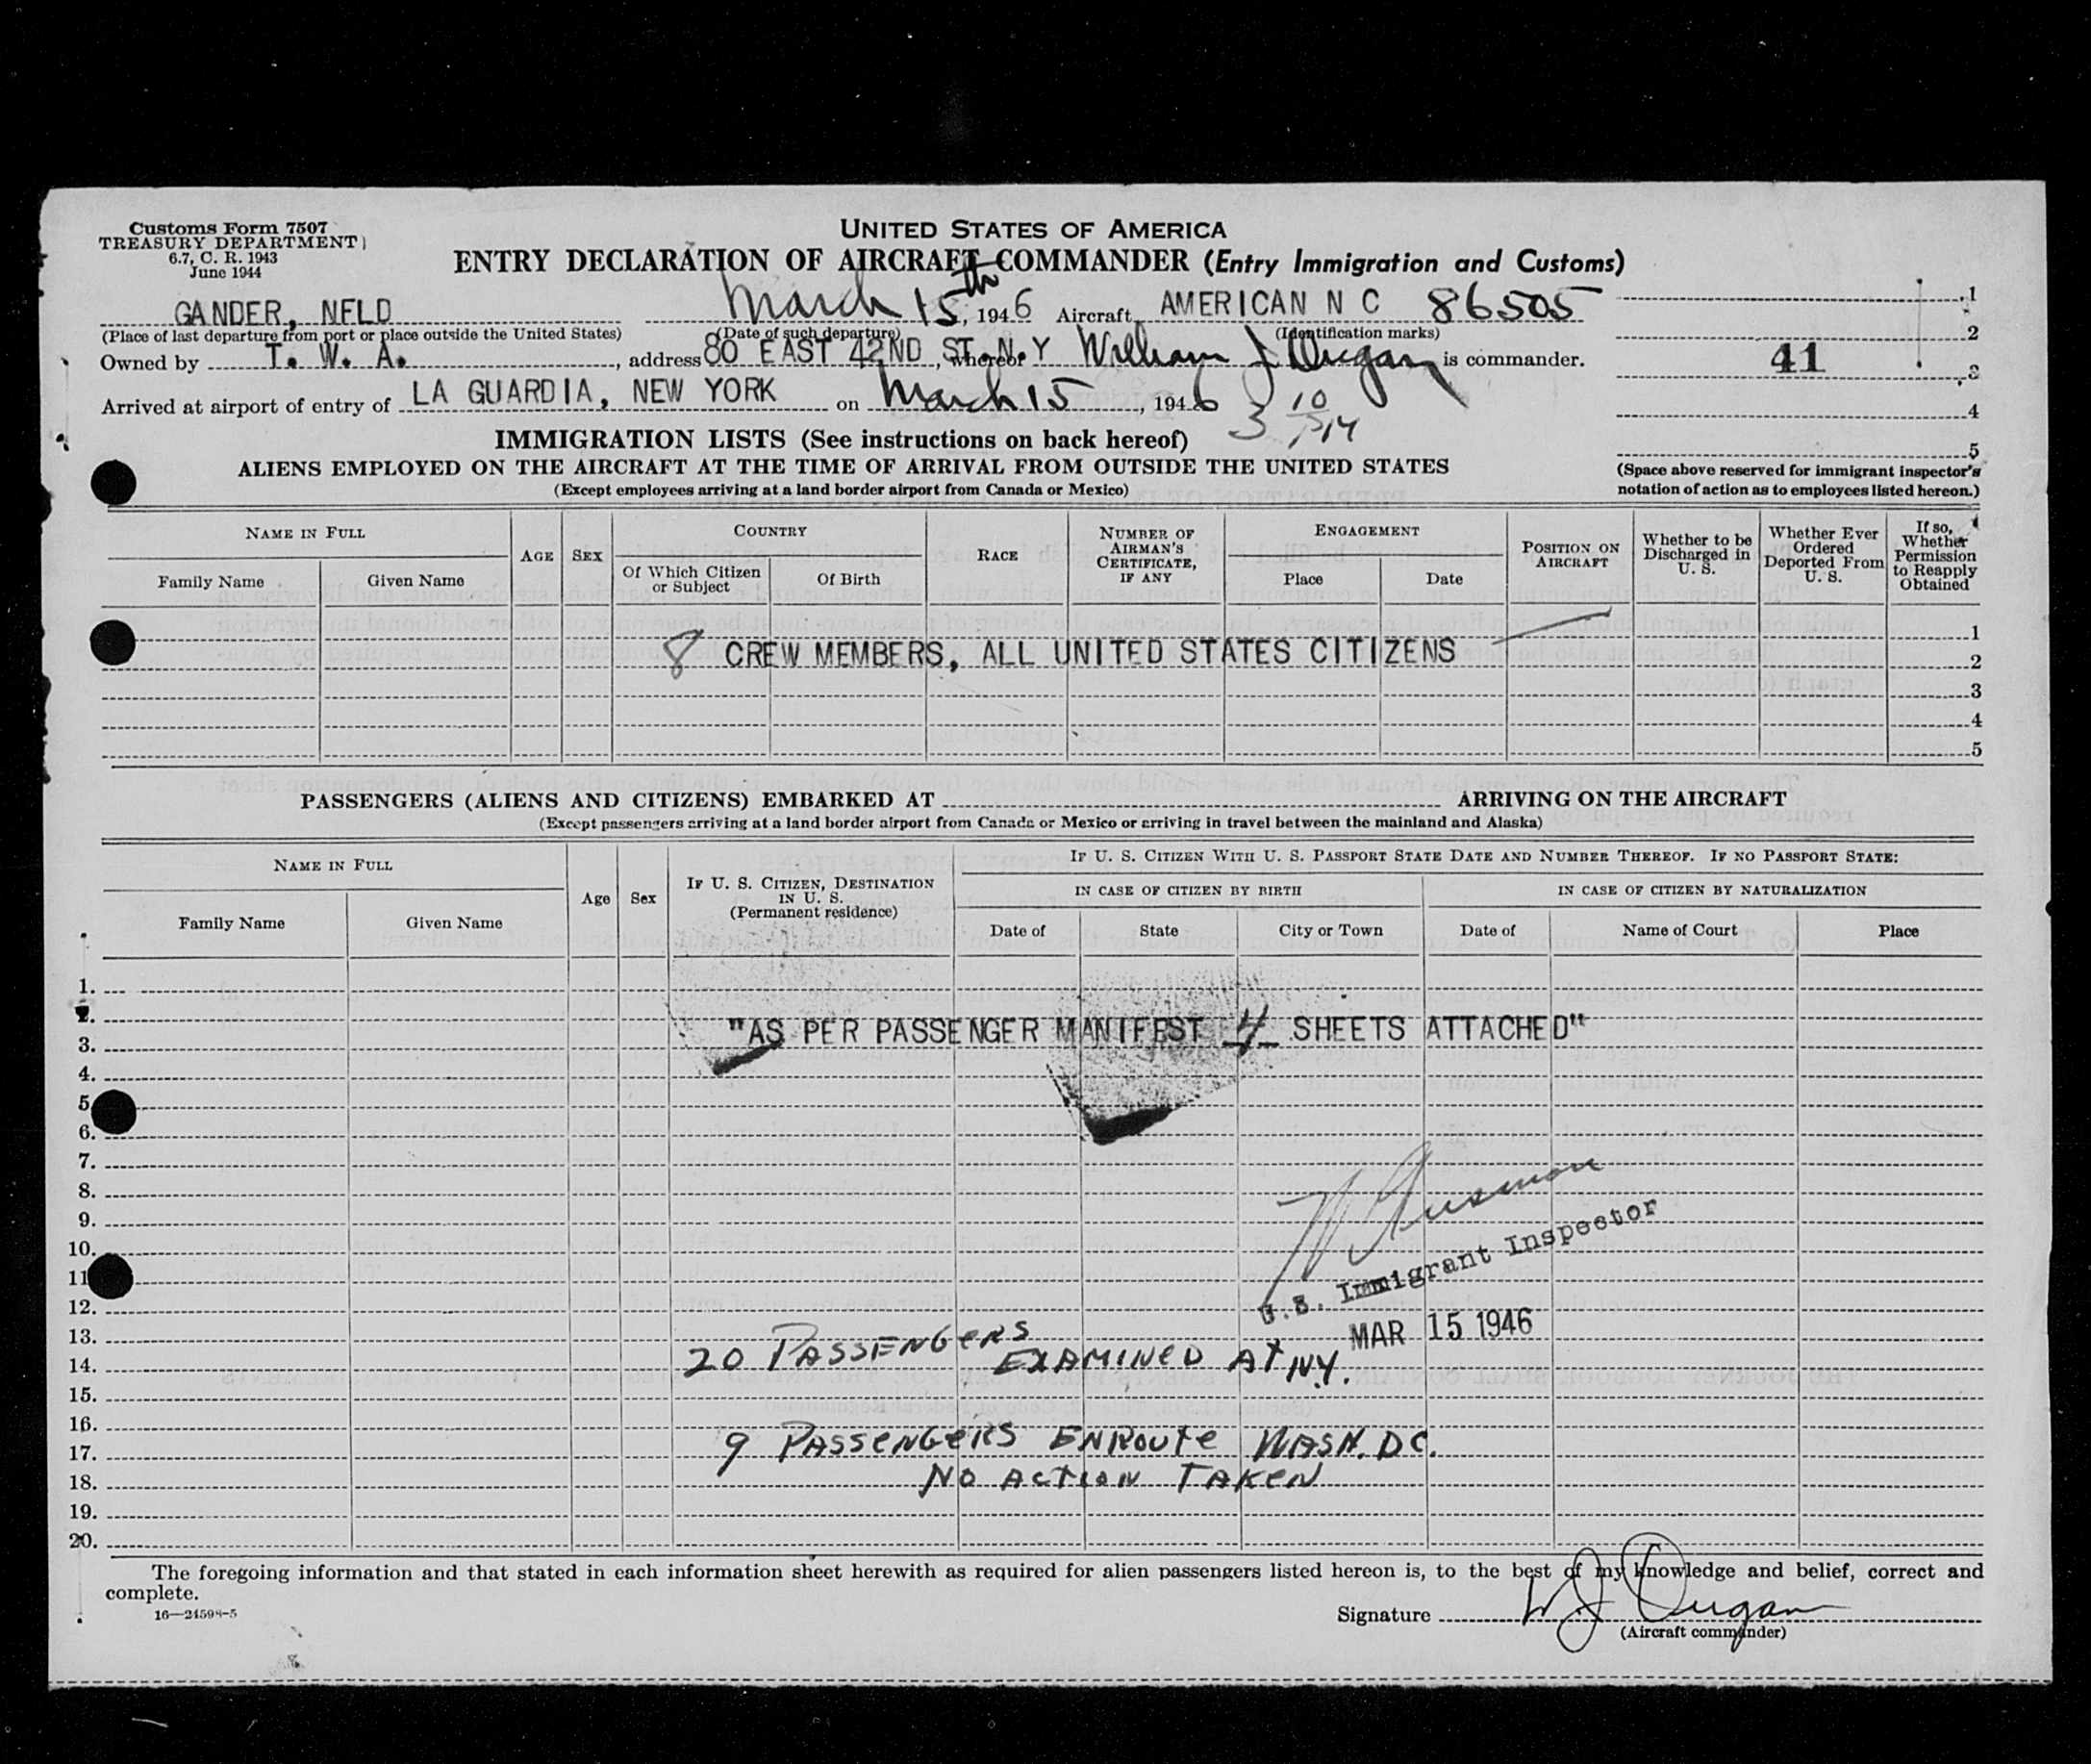 Customs Form 7507
TREASURY DEPARTMENT
6.7, C. R. 1943
June 1944
UNITED STATES OF AMERICA
ENTRY DECLARATION OF AIRCRAFT COMMANDER (Entry Immigration and Customs)
GANDER, NFLD March 15th, 1946 Aircraft AMERICAN N C 86505
(Place of last departure from port or place outside the United States) (Date of such departure) (Identification marks)
Owned by T. W. A., address 80 EAST 42ND ST. N.Y, whereof William J Dugan is commander.
Arrived at airport of entry of LA GUARDIA, NEW YORK on March 15, 1946
1
2
41
3
4
5
(Space above reserved for immigrant inspector's
notation of action as to employees listed hereon.)
IMMIGRATION LISTS (See instructions on back hereof)
ALIENS EMPLOYED ON THE AIRCRAFT AT THE TIME OF ARRIVAL FROM OUTSIDE THE UNITED STATES
(Except employees arriving at a land border airport from Canada or Mexico)
NAME IN FULL
Family Name
Given Name
AGE
SEX
COUNTRY
Of Which Citizen
or Subject
Of Birth
RACE
NUMBER OF
AIRMAN'S
CERTIFICATE,
IF ANY
ENGAGEMENT
Place
Date
POSITION ON
AIRCRAFT
Whether to be
Discharged in
U. S.
Whether Ever
Ordered
Deported From
U. S.
If so,
Whether
Permission
to Reapply
Obtained
1
8 CREW MEMBERS, ALL UNITED STATES CITIZENS
2
3
4
5
PASSENGERS (ALIENS AND CITIZENS) EMBARKED AT ARRIVING ON THE AIRCRAFT
(Except passengers arriving at a land border airport from Canada or Mexico or arriving in travel between the mainland and Alaska)
NAME IN FULL
Family Name
Given Name
Age
Sex
IF U. S. CITIZEN, DESTINATION
IN U. S.
(Permanent residence)
IF U. S. CITIZEN WITH U. S. PASSPORT STATE DATE AND NUMBER THEREOF. IF NO PASSPORT STATE:
IN CASE OF CITIZEN BY BIRTH
Date of
State
City or Town
IN CASE OF CITIZEN BY NATURALIZATION
Date of
Name of Court
Place
1.
2.
"AS PER PASSENGER MANIFEST 4 SHEETS ATTACHED"
3.
4.
5
6.
7.
8.
9.
10.
11
U.S. Immigrant Inspector
12.
MAR 15 1946
13.
20 PASSENGERS
14.
EXAMINED AT N.Y.
15.
16.
17.
9 PASSENGERS ENROUTE WASH. DC.
18.
NO ACTION TAKEN
19.
20.
The foregoing information and that stated in each information sheet herewith as required for alien passengers listed hereon is, to the best of my knowledge and belief, correct and
complete.
16—24598-5
Signature W J Dugan
(Aircraft commander)